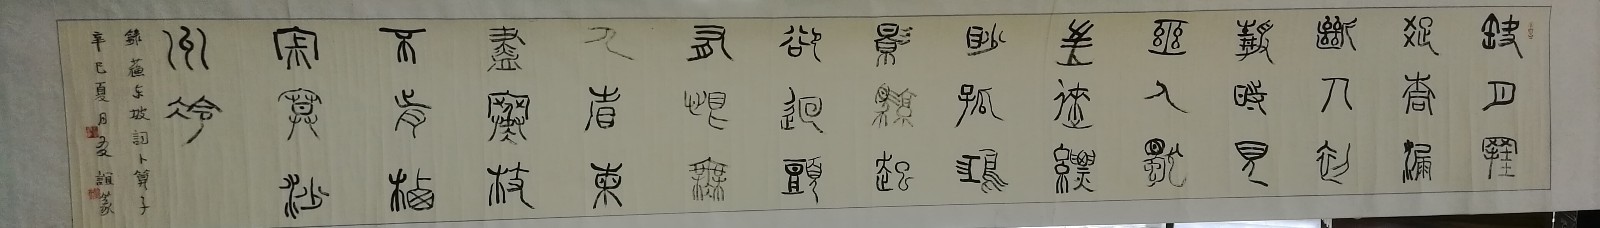 缺月挂
疏桐漏
斷人初
靜時見
幽人獨
往來縹
緲孤鴻
影驚起
卻迴頭
有恨無
人省揀
盡寒枝
不肯棲
寂寞沙
洲冷
錄蘇东坡詞卜算子
辛巳夏月友誼篆